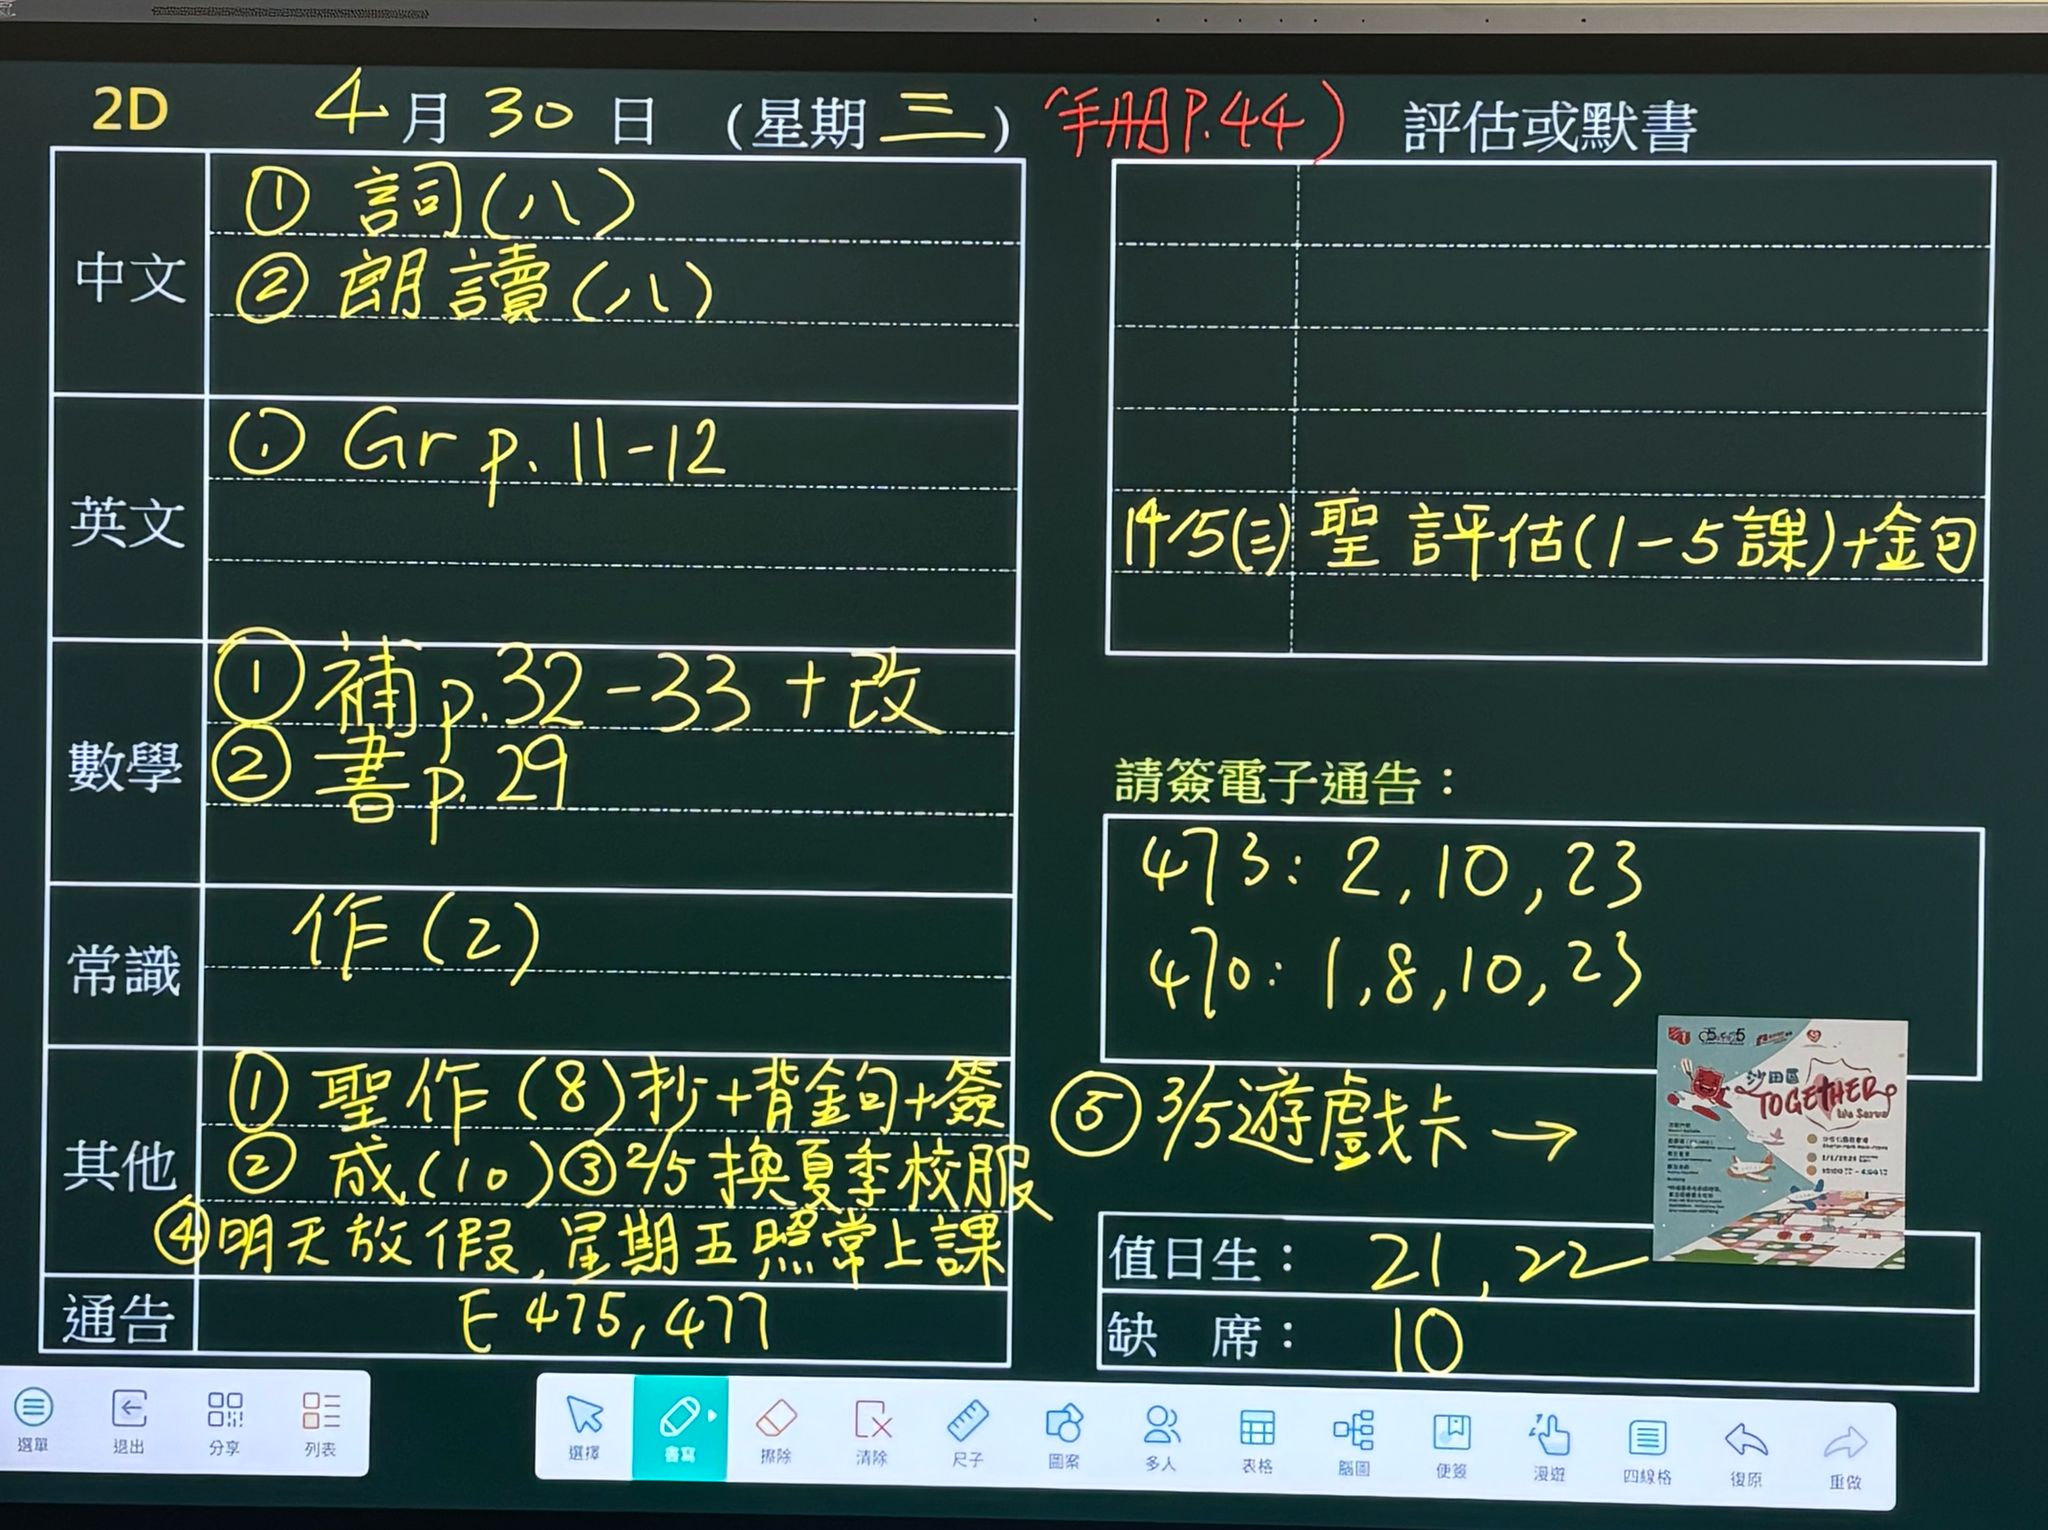 2D 4月30日 (星期三) (手冊P.44)
中文
① 詞(八)
② 朗讀(八)
英文
① Gr p. 11-12
數學
① 補 p.32-33 + 改
② 書 p.29
常識
作(2)
其他
① 聖作(8)抄+背金句+簽
② 成(10) ③ 2/5 換夏季校服
④ 明天放假, 星期五照常上課
通告
E 475, 477
評估或默書
14/5(三) 聖 評估(1-5課)+金句
請簽電子通告：
473: 2, 10, 23
470: 1, 8, 10, 23
⑤ 3/5遊戲卡 →
沙田區
TOGETHER
We Serve
值日生： 21, 22
缺 席： 10
選單 退出 分享 列表 選擇 書寫 擦除 清除 尺子 圖案 多人 表格 腦圖 便簽 漫遊 四線格 復原 重做